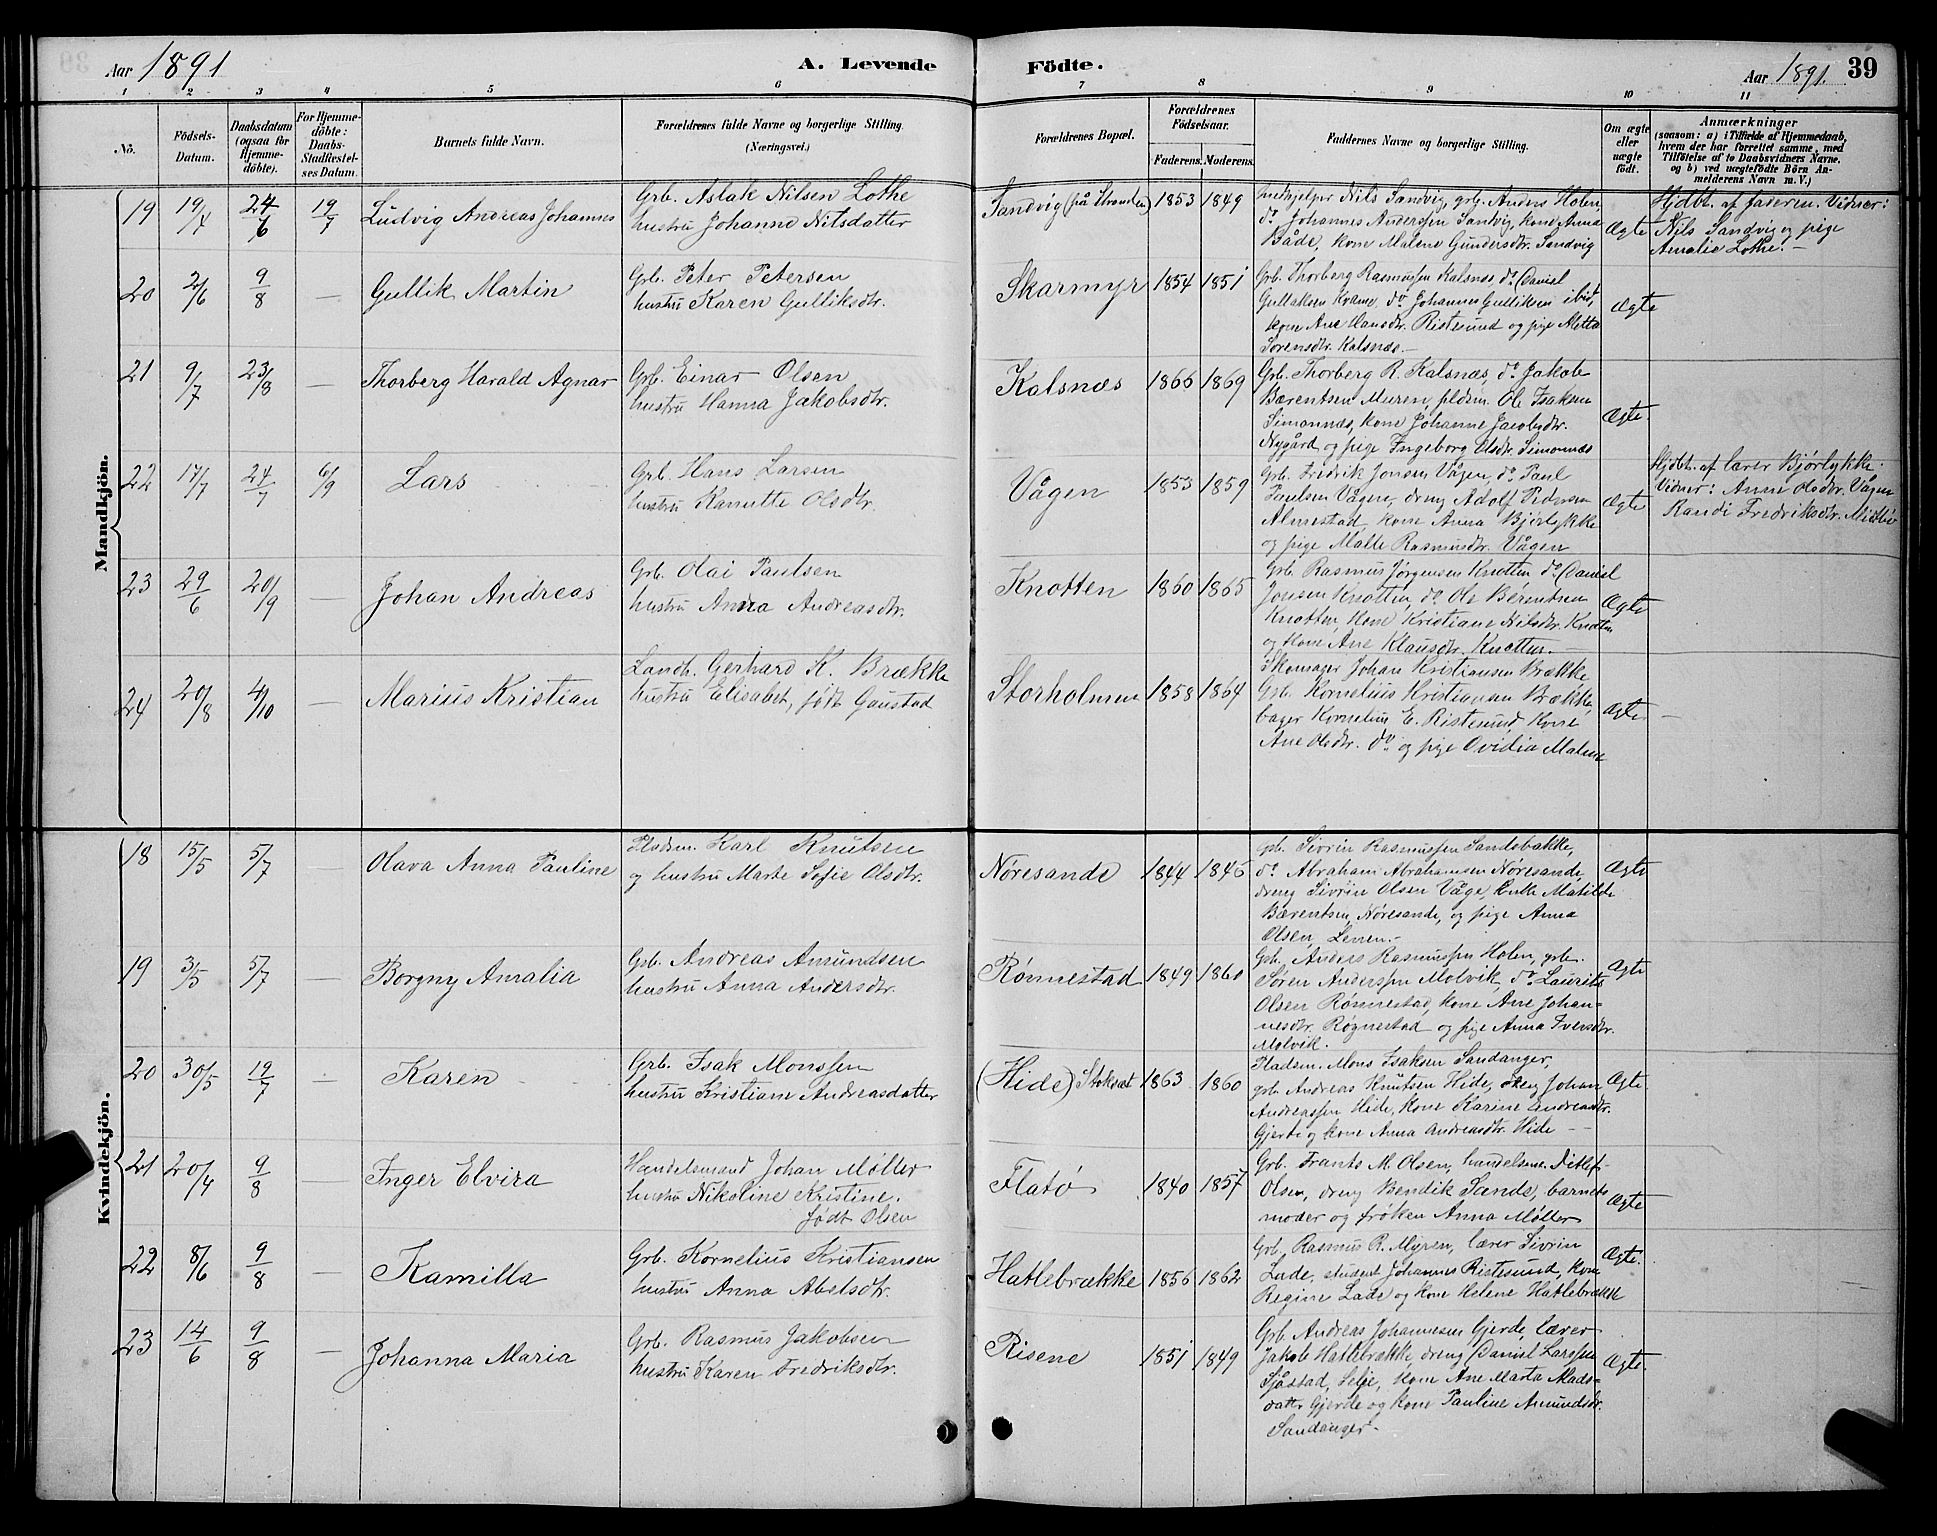 Aar 1891
A. Levende
Födte.
Aar 1891.
39
1 2 3 4 5 6 7 8 9 10 11
No.
Födsels-Datum.
Daabsdatum (ogsaa for Hjemmedöbte).
For Hjemmedöbte: Daabs-Stadfæstelses Datum.
Barnets fulde Navn.
Forældrenes fulde Navne og borgerlige Stilling. (Næringsvei.)
Forældrenes Bopæl.
Forældrenes Födselsaar.
Faderens. Moderens.
Faddernes Navne og borgerlige Stilling.
Om ægte eller uægte födt.
Anmærkninger
(saasom: a) i Tilfælde af Hjemmedaab,
hvem der har forrettet samme, med
Tilföielse af to Daabsvidners Navne,
og b) ved uægtefödte Börn Anmelderens Navn m. V.)
Mandkjön.
19 19/7 24/6 19/7 Ludvig Andreas Johannes
Grb. Aslak Nilsen Lothe
hustru Johanne Nilsdatter
Sandvig (på Stranden) 1853 1849
Nils Sandvig, grb. Anders Holen,
do Johannes Andersen Sandvig, kone Anna
Både, kone Malene Gundersdtr. Sandvig
Ægte
Hjdbt. af faderen. Vidner:
Nils Sandvig og pige
Amalie Lothe. —
20 2/6 9/8 — Gullik Martin
Grb. Peter Petersen
hustru Karen Gulliksdtr.
Skarmyr 1854 1851
Grb. Thorberg Rasmussen Kalsnæs, do Daniel
Gullaksen Kvame, do Johannes Gulliksen ibid,
kone Ane Hansdtr. Ristesund og pige Metta
Sorensdtr. Kalsnæs. —
Ægte
21 9/7 23/8 — Thorberg Harald Agnar
Grb. Einar Olsen
hustru Hanna Jakobsdtr.
Kalsnæs 1866 1869
Grb. Thorberg R. Kalsnæs, do Jakob
Bærentsen Muren, pldsm. Ole Isaksen
Simonnæs, kone Johanne Jacobsdtr.
Nygård og pige Ingeborg Olsdtr. Simonnæs
Ægte
22 17/7 24/7 6/9 Lars
Grb. Hans Larsen
hustru Kanutte Olsdtr.
Vågen 1853 1859
Grb. Fredrik Jonsen Vågen, do Paul
Paulsen Vågen, dreng Adolf Pedersen
Almestad, kone Anna Bjørlykke
og pige Malle Rasmusdtr. Vågen
Ægte
Hjdbt. af lærer Bjørlykke.
Vidner: Anne Olsdtr. Vågen
Randi Fredriksdtr. Midbø
23 29/6 20/9 — Johan Andreas
Grb. Olai Paulsen
hustru Anna Andreasdtr.
Knotten 1860 1865
Grb. Rasmus Jørgensen Knotten do Daniel
Jonsen Knotten, do Ole Berentsen
Knotten, kone Kristiane Nilsdtr. Knotten
og kone Ane Klausdtr. Knotten. —
Ægte
24 20/8 4/10 — Marius Kristian
Landh. Gerhard K. Brække
hustru Elisabet, født Gaustad
Storholmen 1858 1864
Skomager Johan Kristiansen Brække
Grb. Kornelius Kristiansen Brække,
bager Kornelius E. Ristesund, kone
Ane Olsdtr. do og pige Ovidia Malene
Ægte. —
Kvindekjön.
18 15/5 5/7 — Olava Anna Pauline
Pladsm. Karl Knutsen
og hustru Marte Sofie Olsdtr.
Nøresande 1844 1845
grb. Sivrin Rasmussen Sandsbakke,
do Abraham Abrahamsen Nøresande,
dreng Sivrin Olsen Våge, Enke Matilde
Bærentsen, Nøresande, og pige Anna
Olsen, Lenen. —
Ægte
19 3/5 5/7 — Borgny Amalia
Grb. Andreas Amundsen
hustru Anna Andersdtr.
Rønnestad 1849 1860
Grb. Anders Rasmussen Holen, grb.
Søren Anderssen Molvik, do Laurits
Olsen Rønnestad, kone Ane Johan-
nesdtr. Røgnestad og pige Anna Iversdtr.
Molvik.
Ægte
20 30/5 19/7 — Karen
Grb. Isak Monssen
hustru Kristiane Andreasdatter
(Hide) Stoksæt 1863 1860
Pladsm. Mons Isaksen Sandanger,
grb. Andreas Knutsen Hide, dreng Johan
Andreassen Hide, kone Karine Andreasdtr.
Gjerde og kone Anna Andreasdtr. Hide —
Ægte.
21 20/4 9/8 — Inger Elvira
Handelsmand Johan Møller
hustru Nikoline Kristine.
født Olsen
Flatø 1840 1857
Grb. Frants M. Olsen, handelsm. Ditlef
Olsen, dreng Bendik Sande, barnets
moder og frøken Anna Møller
Ægte
22 8/6 9/8 — Kamilla
Grb. Kornelius Kristiansen
hustru Anna Abelsdtr.
Hatlebrække 1856 1862
Grb. Rasmus R. Myren, lærer Sivrin
Lade, student Johannes Ristesund, kone
Regine Lade og kone Helene Hatlebrække
Ægte.
23 14/6 9/8 — Johanna Maria
Grb. Rasmus Jakobsen
hustru Karen Fredriksdtr.
Risene 1851 1849
Grb. Andreas Johannesen Gjerde, lærer
Jakob Hatlebrække, dreng Daniel Larssen
Sjåstad, Selje, kone Ane Marta Mads-
datter Gjerde og kone Pauline Amundsdtr.
Sandanger. —
Ægte